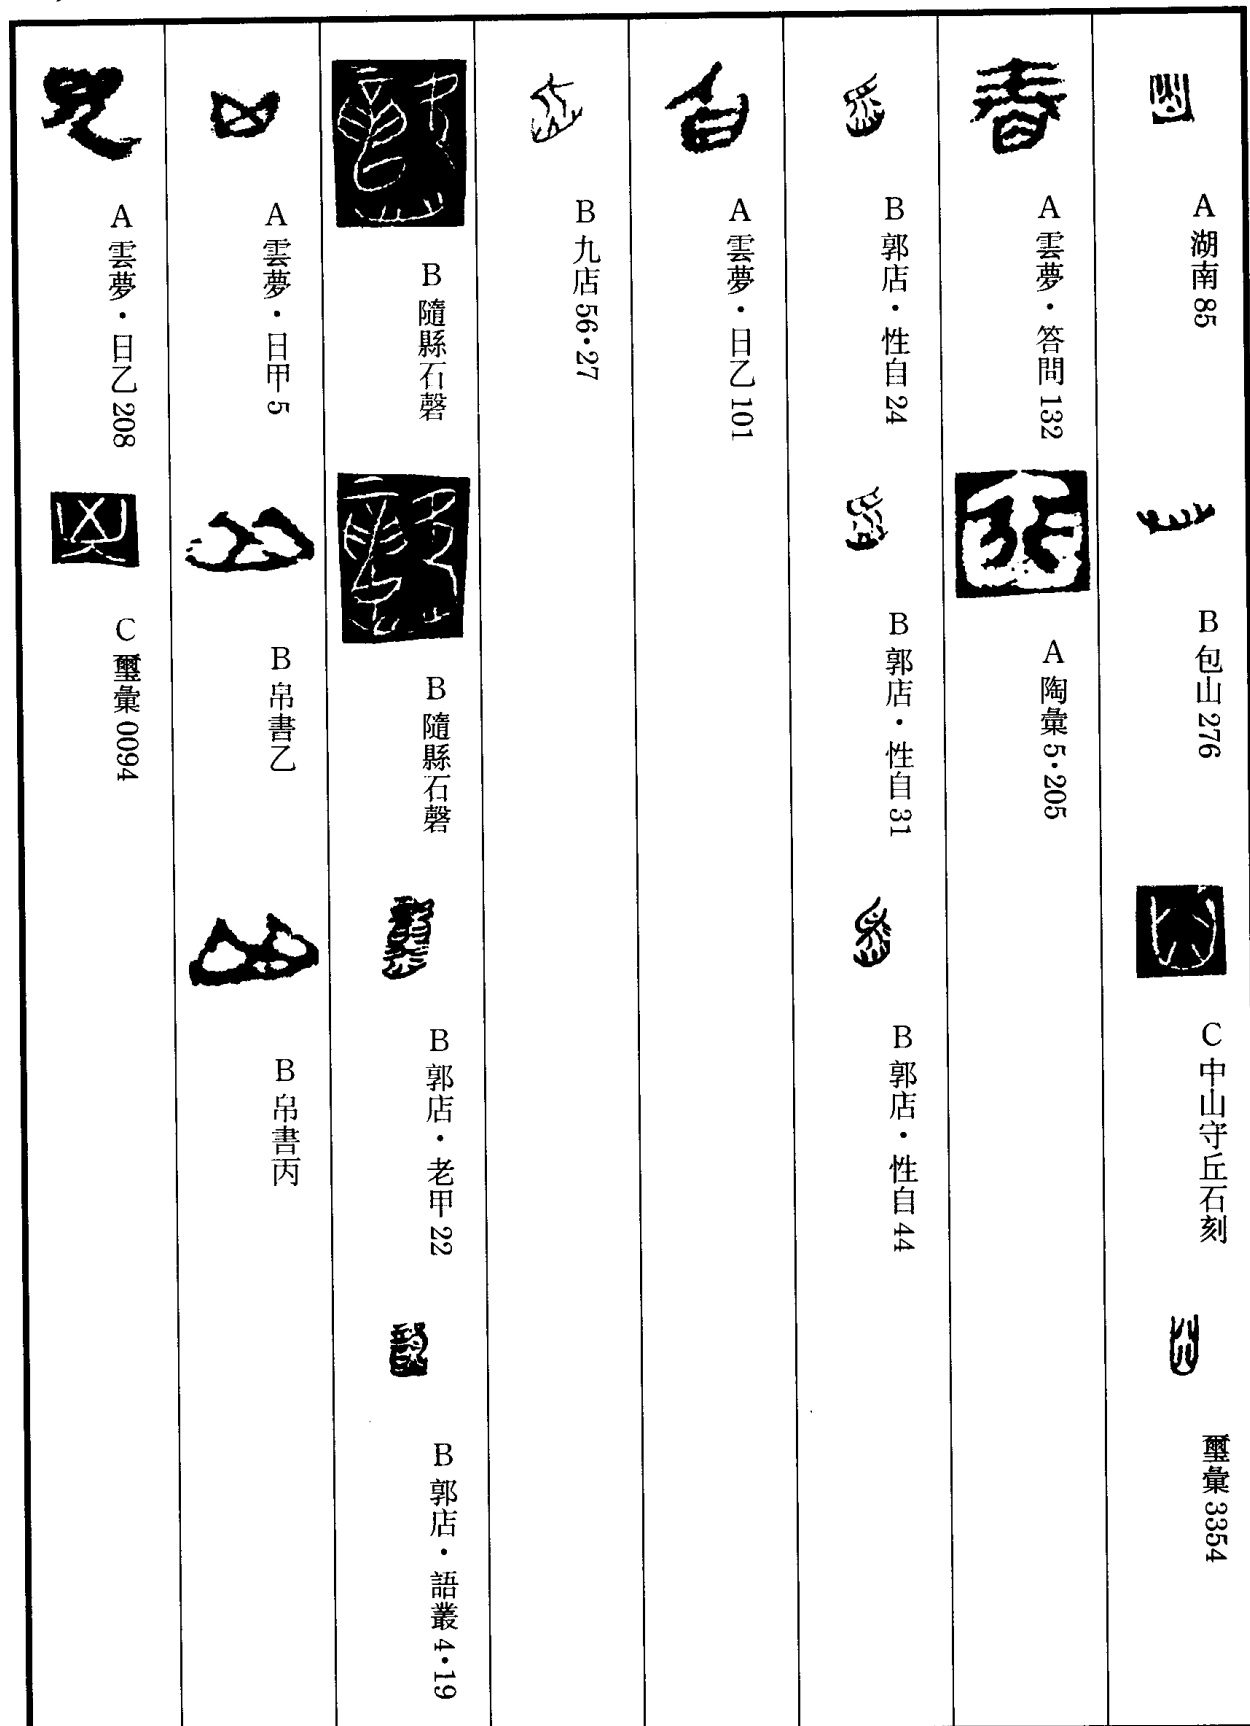 A 湖南 85
B 包山 276
C 中山守丘石刻
璽彙 3354
A 雲夢·答問 132
A 陶彙 5·205
B 郭店·性自 24
B 郭店·性自 31
B 郭店·性自 44
A 雲夢·日乙 101
B 九店 56·27
B 隨縣石磬
B 隨縣石磬
B 郭店·老甲 22
B 郭店·語叢 4·19
A 雲夢·日甲 5
B 帛書乙
B 帛書丙
A 雲夢·日乙 208
C 璽彙 0094